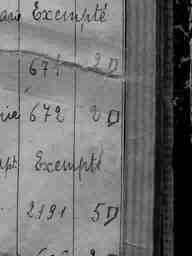 Exempté
671 2 D
672 2 D
Exempté
2191 5 D